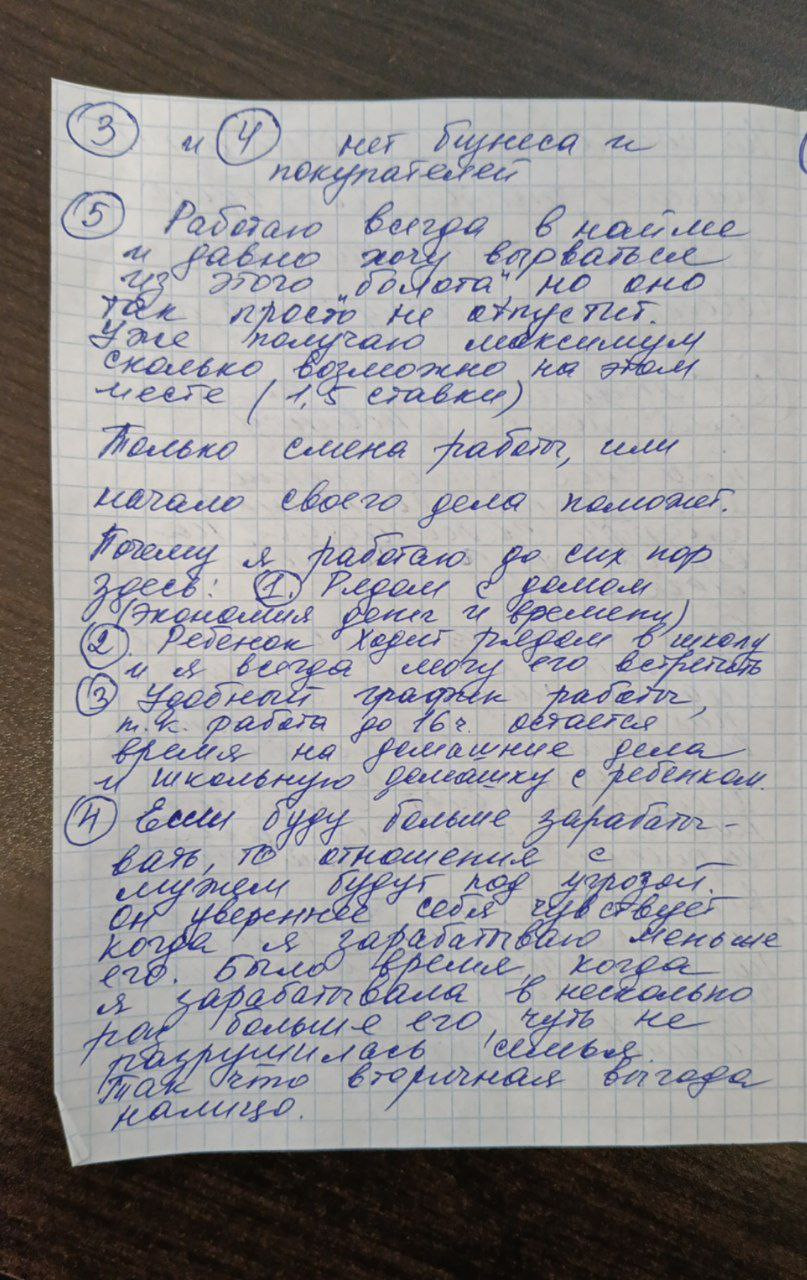 3 и 4 нет бизнеса и
покупателей
5 Работаю всегда в найме
и давно хочу вырваться
из этого "болота" но оно
так просто не отпустит.
Уже получаю максимум
сколько возможно на этом
месте (1,5 ставки)
Только смена работы, или
начало своего дела поможет.
Почему я работаю до сих пор
здесь: 1. Рядом с домом
(экономия денег и времени)
2. Ребенок ходит рядом в школу
и я всегда могу его встретить
3 Удобный график работы,
т.к. работа до 16 ч. остается
время на домашние дела
и школьную домашку с ребенком.
4 Если буду больше зарабаты-
вать, то отношения с
мужем будут под угрозой.
Он увереннее себя чувствует
когда я зарабатываю меньше
его. Было время, когда
я зарабатывала в несколько
раз больше его, чуть не
разрушилась семья.
Так что вторичная выгода
налицо.